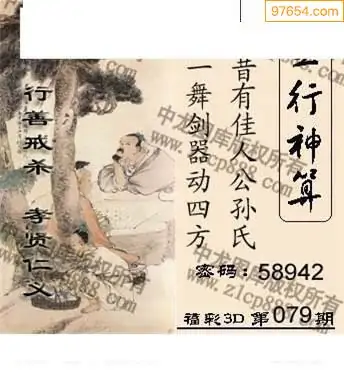 97654.com
五行神算
昔有佳人公孙氏
一舞剑器动四方
行善戒杀 孝贤仁义
密码：58942
福彩3D 第079期
中龙图库版权所有
www.z1cp888.com